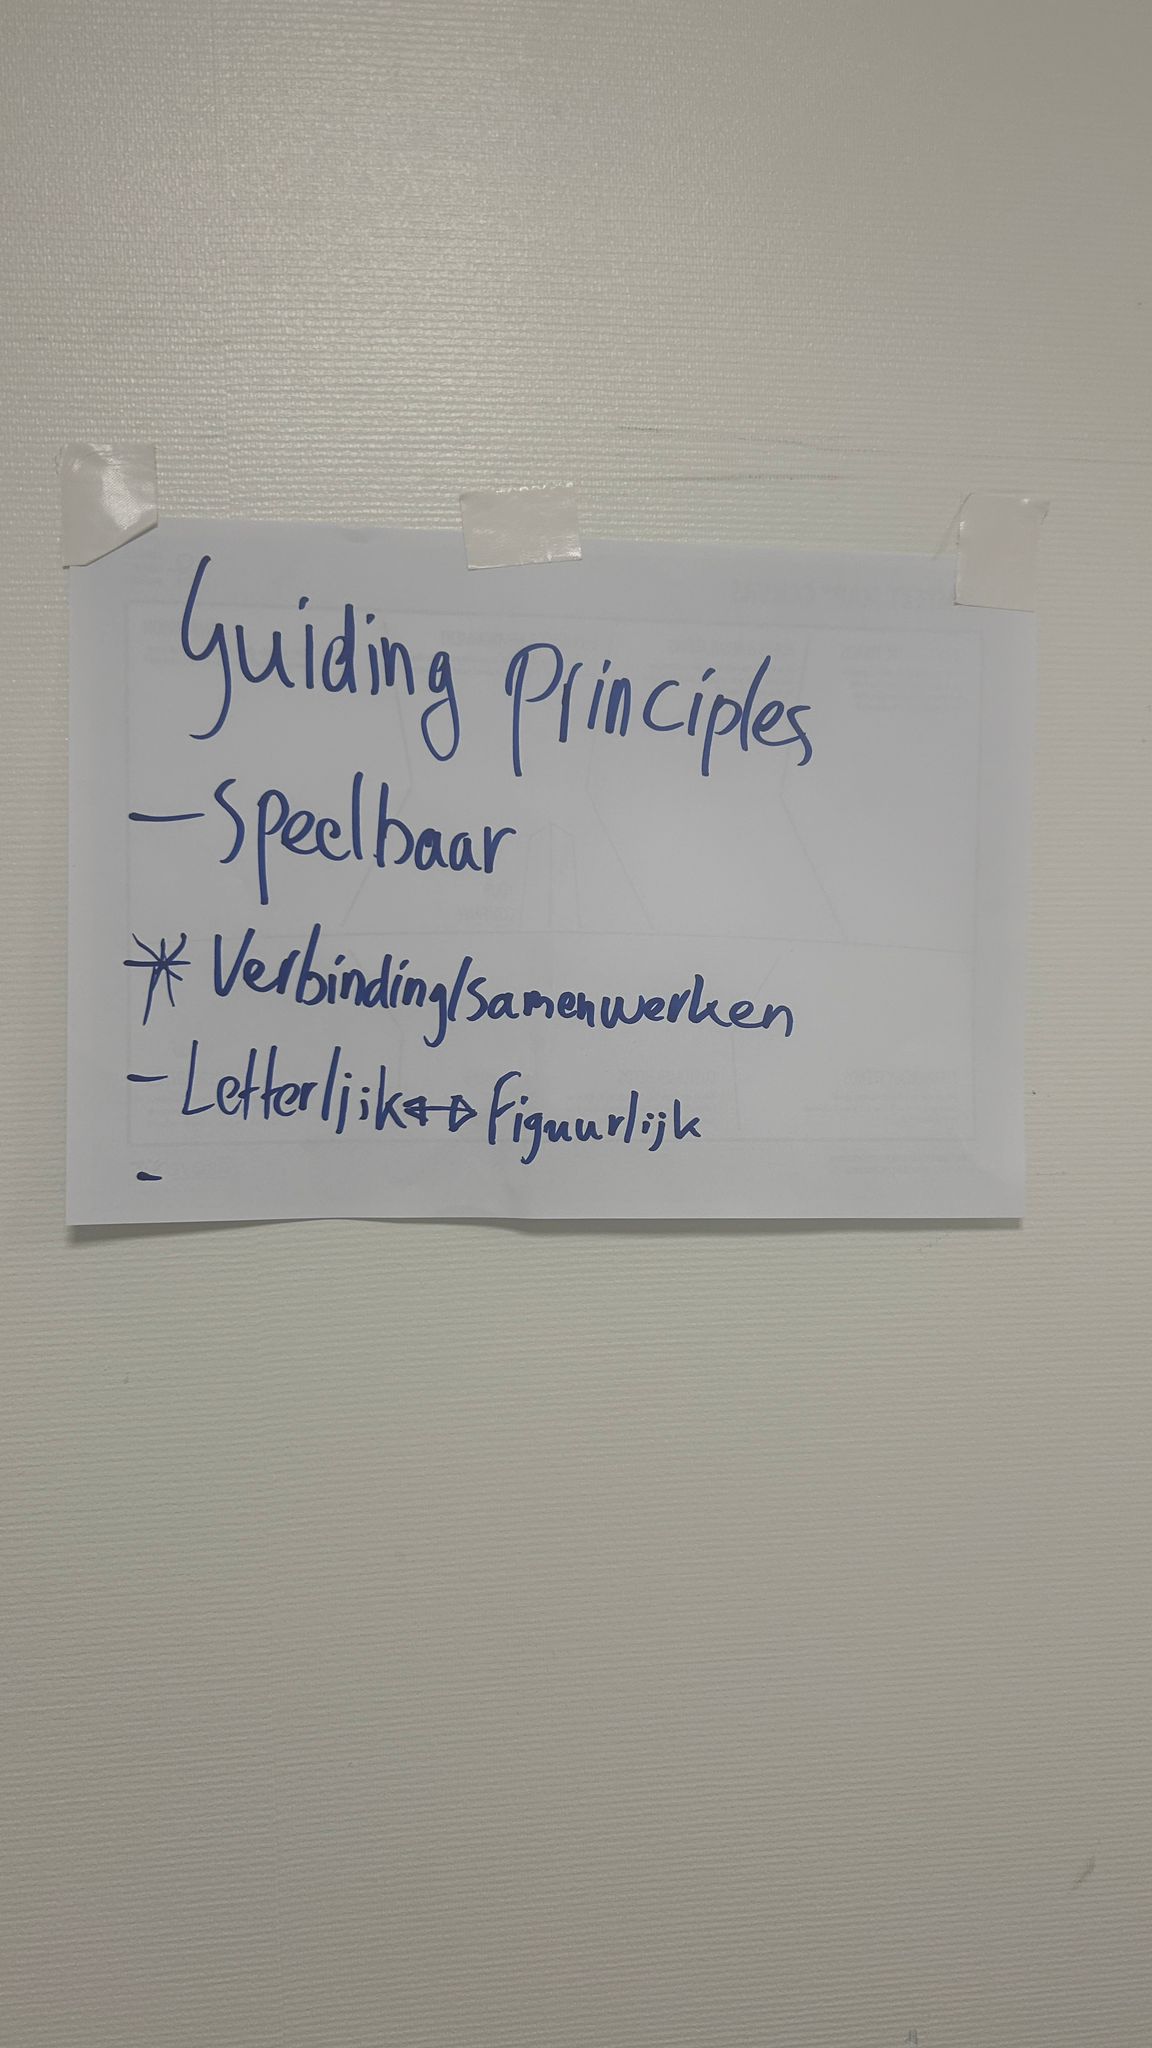 Guiding Principles
- Speelbaar
* Verbinding/samenwerken
- Letterlijk ↔ Figuurlijk
-